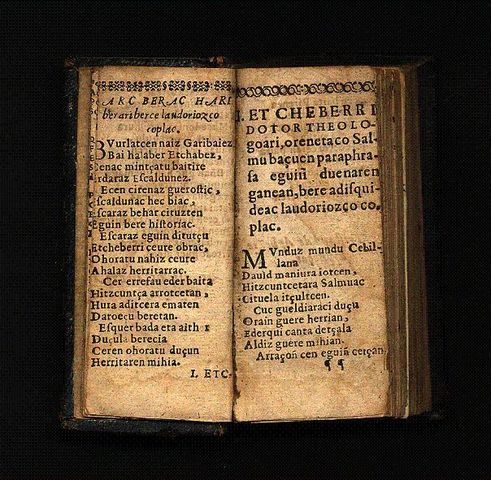 ARC BERAC HARI
berari berce laudoriozco
coplac.
BVurlatcen naiz Garibaiez
Bai halaber Etchabez,
Cenac mintçatu baitire
Erdaraz Escaldunez.
Ecen cirenaz gueroſtic,
Eſcaldunac hec biac,
Eſcaraz behar cituzten
Eguin bere hiſtoriac.
Eſcaraz eguin ditutçu
Etcheberri ceure obrac,
Ohoratu nahiz ceure
Ahalaz herritarrac.
Cer errefau eder baita
Hitzcuntça arrotcetan,
Hura aditcera ematen
Daroeçu beretan.
Eſquer bada eta aith
Duçula berecia
Ceren ohoratu duçun
Herritaren mihia.
I. ETC-
I. ET CHEBERRI
DOTOR THEOLO-
goari, orenetaco Sal-
mu baçuen paraphra-
ſa eguiñ duenaren
ganean, bere adiſqui-
deac laudoriozço co-
plac.
MVnduz mundu Cebil-
lana
Dauid maniura iotcen,
Hitzcuntcetara Salmuac
Cituela itçultcen.
Cuc gueldiaraci duçu
Orain guere herrian,
Ederqui canta detçala
Aldiz guere mihian.
Arraçoñ cen eguiñ cerçan,
¶ ¶